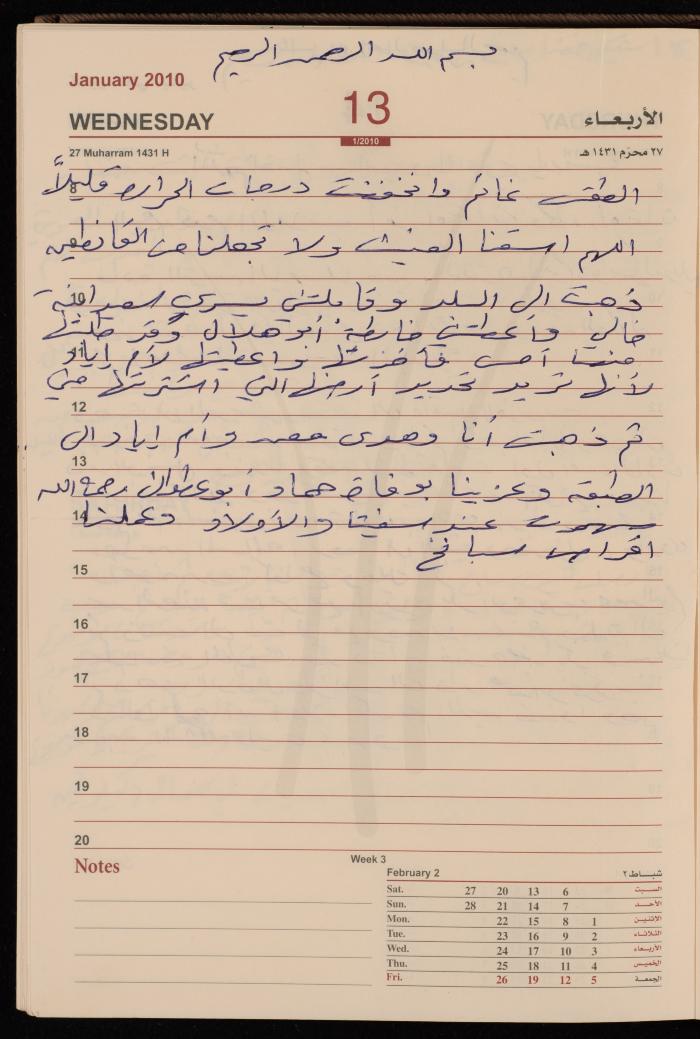 بسم الله الرحمن الرحيم
January 2010
WEDNESDAY
13
الأربعاء
1/2010
27 Muharram 1431 H
٢٧ محرّم ١٤٣١ هـ
الطقس غائم وانخفضت درجات الحراره قليلاً
اللهم اسقنا الغيث ولا تجعلنا من القانطين
10
ذهبت الى السلد وقابلتني يسرى سعد ابنة
خالي وأعطتني خارطة أبو هلال وقد طلبتها
11
منها أمس فأخذتها وأعطيتها لأم إياد
لأنها تريد تحديد أرضها التي اشترتها مني
12
ثم ذهبت أنا وهدى وأم إياد الى
13
الطبقه وعزينا بوفاة حماد أبو علوان رحمه الله
14
سهرت عند والأولاد وعملنا
اقراص سبانخ
15
16
17
18
19
20
Notes
Week 3
February 2
شبـاط ٢
Sat. 27 20 13 6 السبت
Sun. 28 21 14 7 الأحـد
Mon. 22 15 8 1 الاثنين
Tue. 23 16 9 2 الثلاثاء
Wed. 24 17 10 3 الأربعاء
Thu. 25 18 11 4 الخميس
Fri. 26 19 12 5 الجمعة